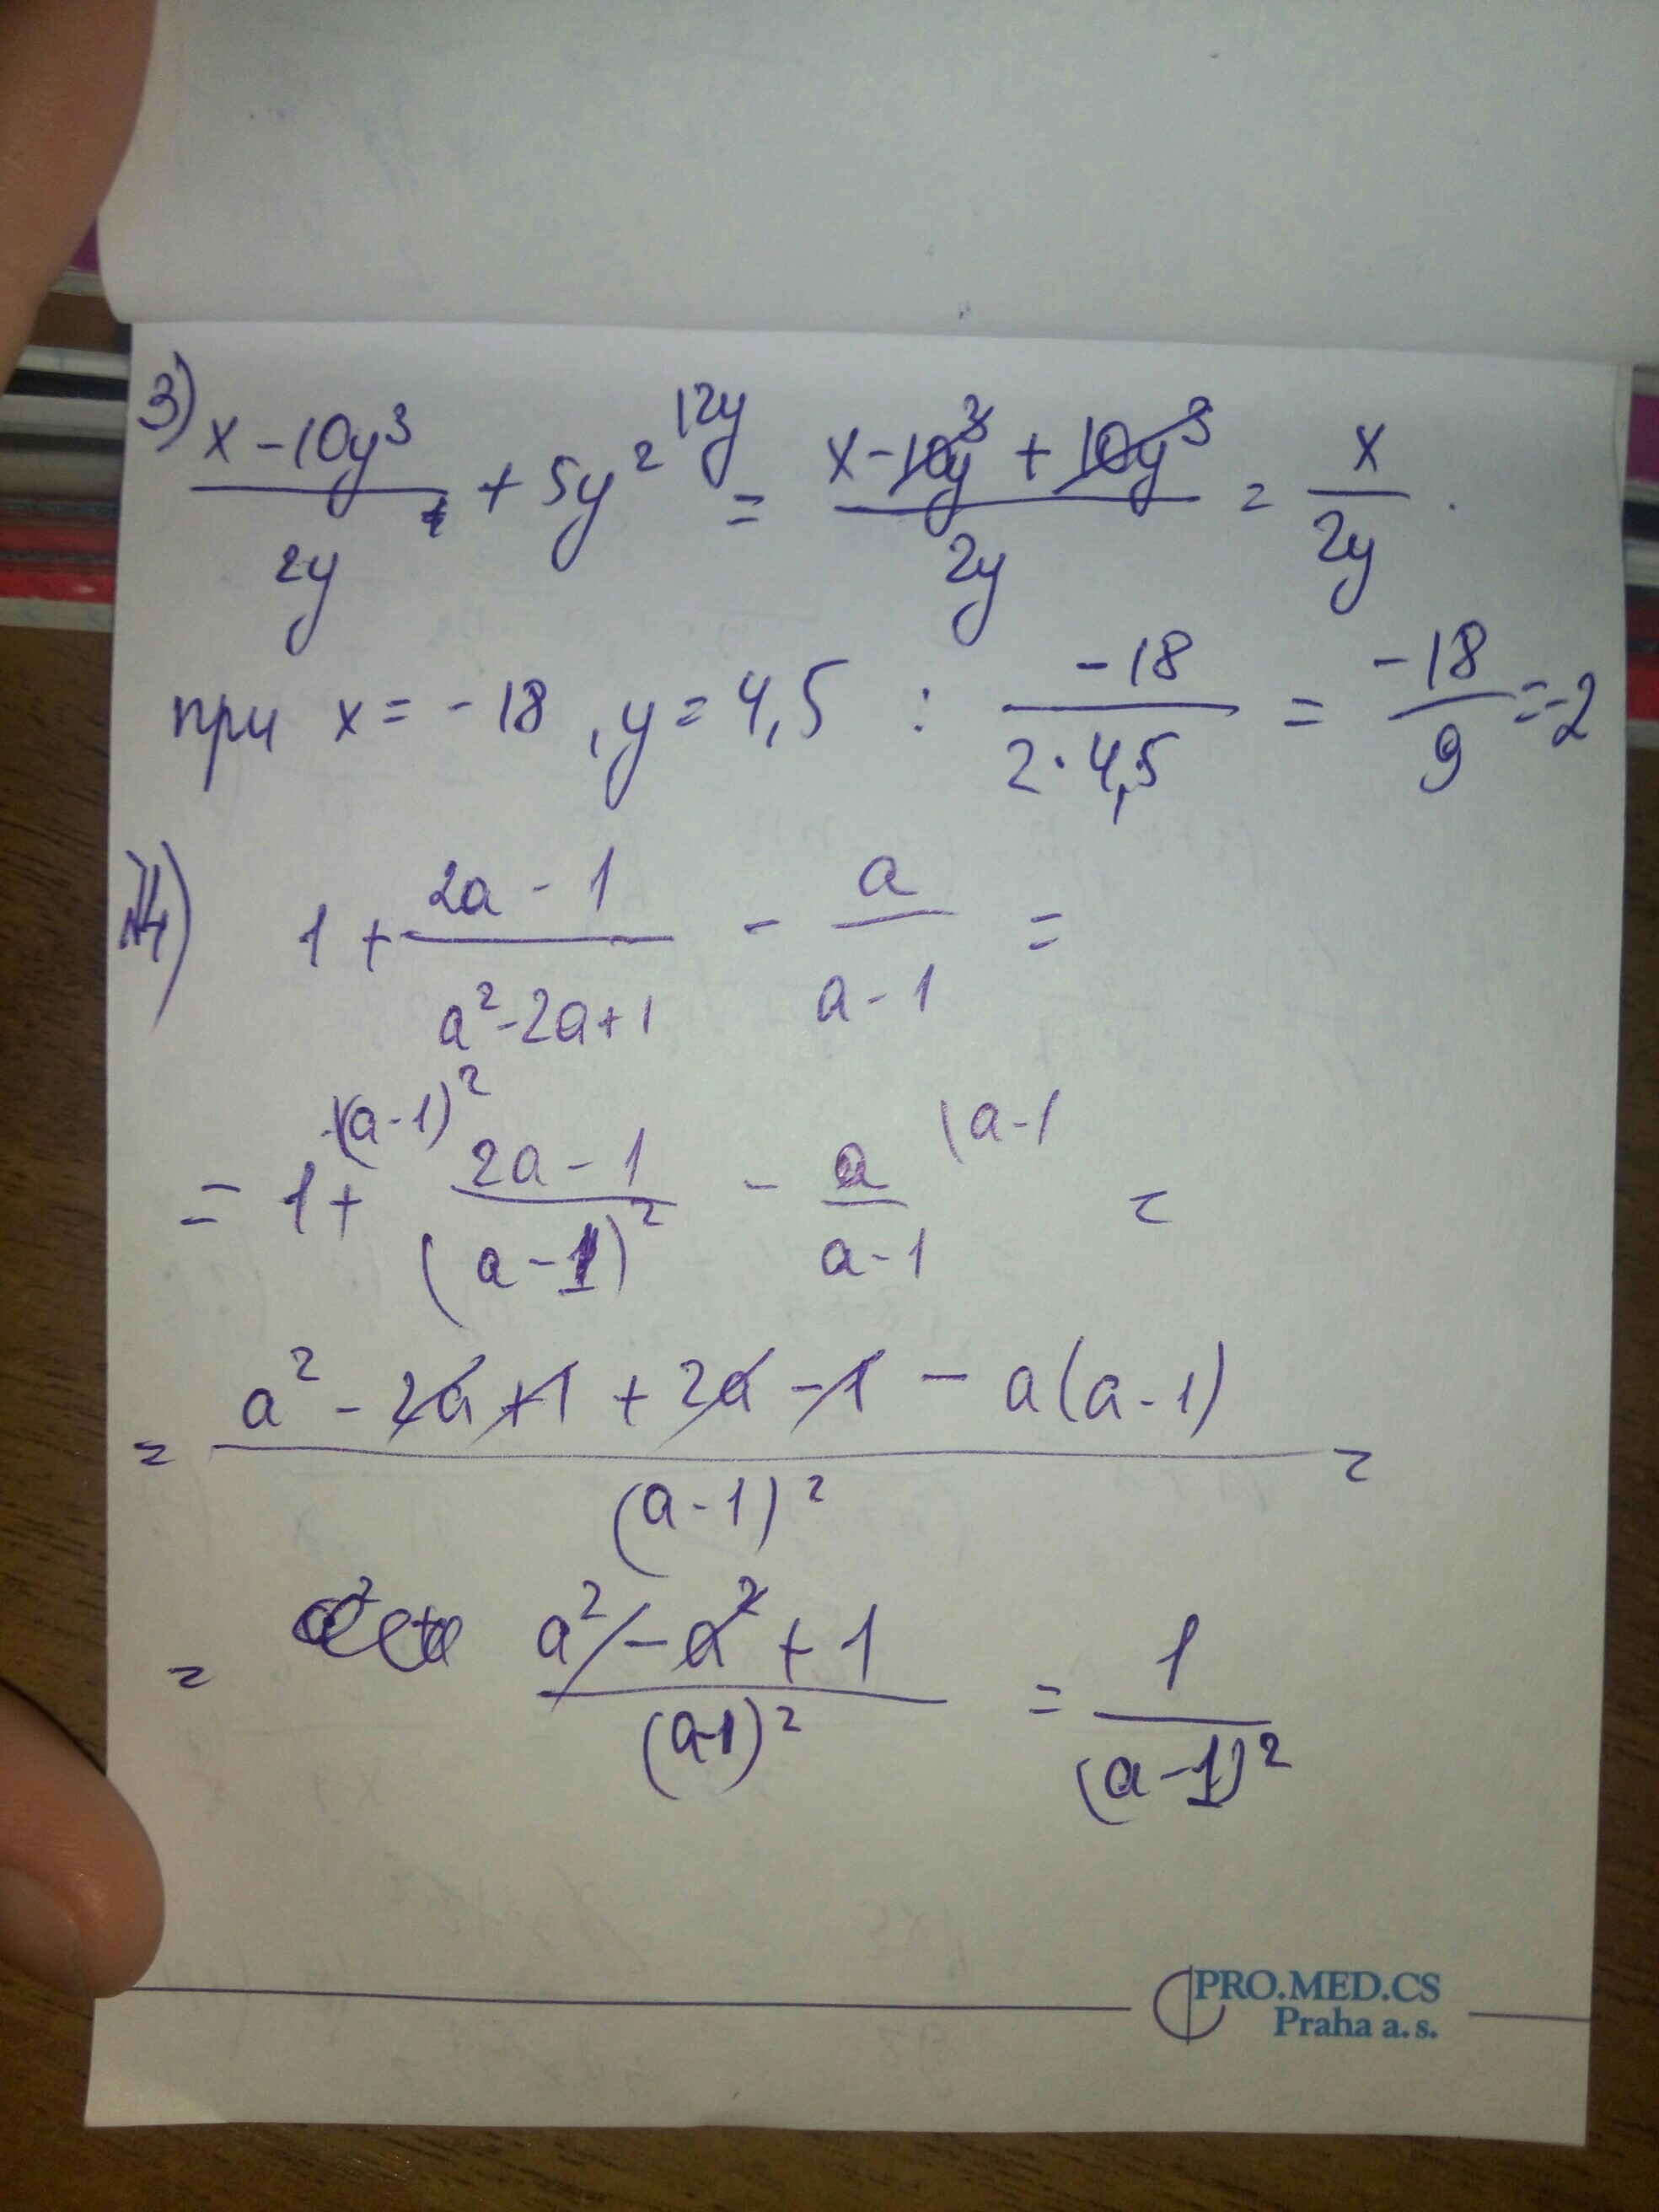 3) (x - 10y³)/(2y) + 5y² |2y = (x - 10y³ + 10y³)/(2y) = x/(2y).
при x = -18, y = 4,5 : (-18)/(2·4,5) = (-18)/9 = -2
4) 1 + (2a - 1)/(a² - 2a + 1) - a/(a - 1) =
= 1 ·(a-1)² + (2a - 1)/(a - 1)² - a/(a - 1) (a - 1 =
= (a² - 2a + 1 + 2a - 1 - a(a - 1))/(a - 1)² =
= (a² - a² + 1)/(a-1)² = 1/(a - 1)²
PRO.MED.CS
Praha a.s.